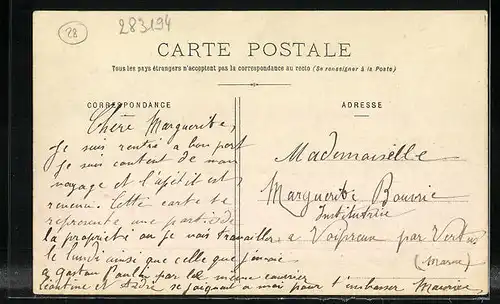 28
283194
CARTE POSTALE
Tous les pays étrangers n'acceptent pas la correspondance au recto (Se renseigner à la Poste)
CORRESPONDANCE
Chère Marguerite,
Je suis rentré a bon port
Je suis content de mon
voyage et l'apétit est
revenu. Cette carte se
represente une partie de
la propriété ou je vais travailler
le lundi ainsi que celle que
a Gaston Paulin par le même courrier
et André se joignent a moi pour t'embrasser Maurice
ADRESSE
Mademoiselle
Marguerite
Institutrice
a Voipreux par Vertus
(Marne)